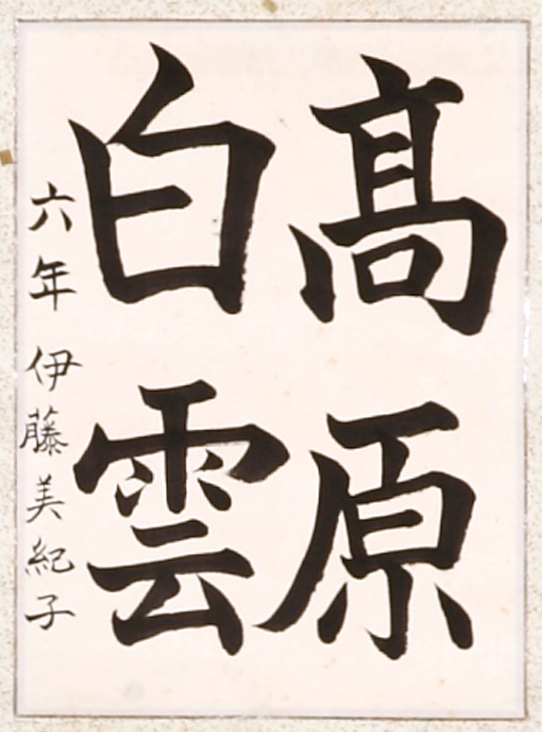 髙原
白雲
六年 伊藤美紀子